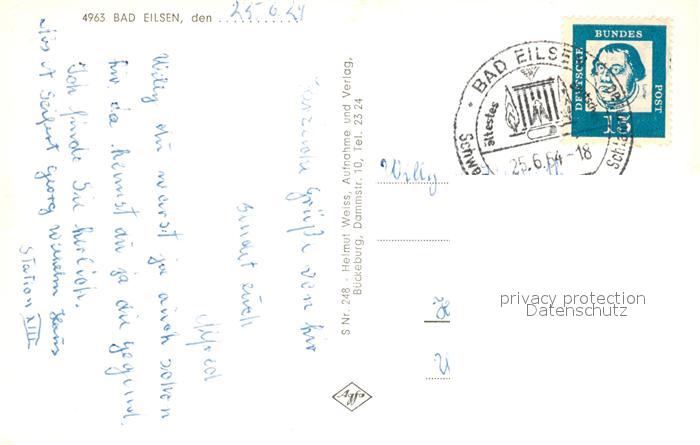 4963 BAD EILSEN, den 25.6.64
Herzliche Grüße von hir
sendet euch
Alfred
Willy du warst ja auch schon
hir da kennst du ja die Gegend.
Ich finde Sie herlich.
Georg Wilhelm Haus
Station XIII
S Nr. 248 - Helmut Weiss, Aufnahme und Verlag,
Bückeburg, Dammstr. 10, Tel. 23 24
Agfa
BAD EILSEN
ältestes
25.6.64-18
DEUTSCHE BUNDES POST
15
Willy
privacy protection
Datenschutz